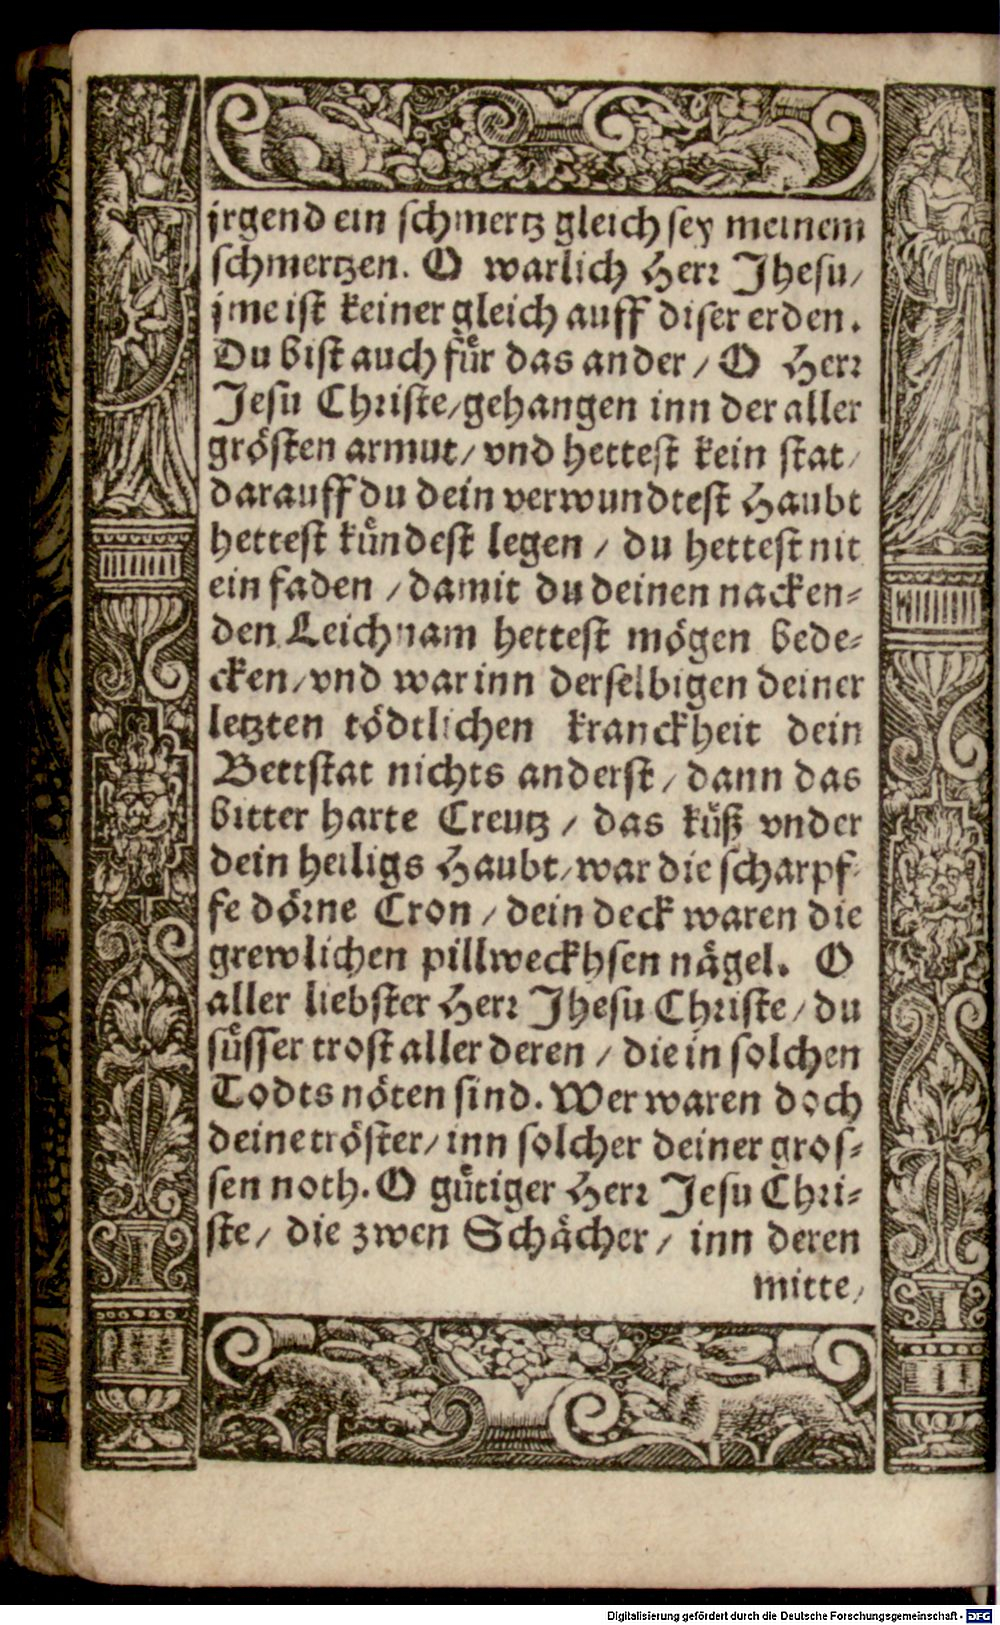 jrgend ein schmertz gleich sey meinem
schmertzen. O warlich Herr Jhesu/
jme ist keiner gleich auff diser erden.
Du bist auch fuͤr das ander/ O Herr
Jesu Christe/gehangen inn der aller
groͤsten armut/ vnd hettest kein stat/
darauff du dein verwundtest Haubt
hettest kuͤndest legen / du hettest nit
ein faden / damit du deinen nacken-
den Leichnam hettest moͤgen bede-
cken/vnd war inn derselbigen deiner
letzten toͤdtlichen kranckheit dein
Bettstat nichts anderst/ dann das
bitter harte Creutz / das kuͤß vnder
dein heiligs Haubt/war die scharpf-
fe doͤrne Cron / dein deck waren die
grewlichen pillweckhsen naͤgel. O
aller liebster Herr Jhesu Christe/ du
suͤsser trost aller deren / die in solchen
Todts noͤten sind. Wer waren doch
deine troͤster/ inn solcher deiner gros-
sen noth. O guͤtiger Herr Jesu Chri-
ste/ die zwen Schaͤcher/ inn deren
mitte/
Digitalisierung gefördert durch die Deutsche Forschungsgemeinschaft - DFG